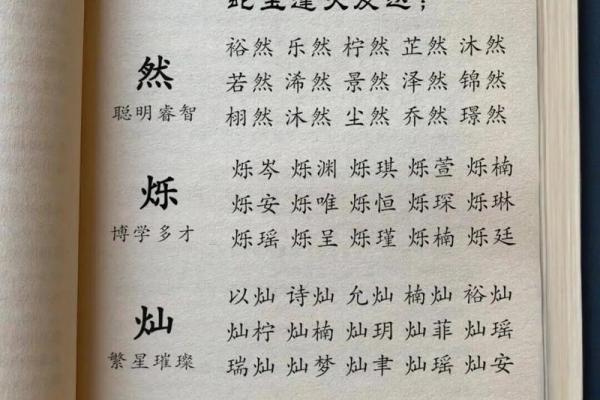 蛇宝逢火发达；
然
聪明睿智
裕然 乐然 柠然 芷然 沐然
若然 浠然 景然 泽然 锦然
栩然 沐然 尘然 乔然 璟然
烁
博学多才
烁岑 烁渊 烁琪 烁萱 烁楠
烁安 烁唯 烁恒 烁琛 烁琳
烁瑶 烁呈 烁瑾 烁楠 烁廷
灿
繁星璀璨
以灿 诗灿 允灿 楠灿 裕灿
灿柠 灿楠 灿玥 灿菲 灿瑶
瑞灿 灿梦 灿聿 灿瑶 灿安